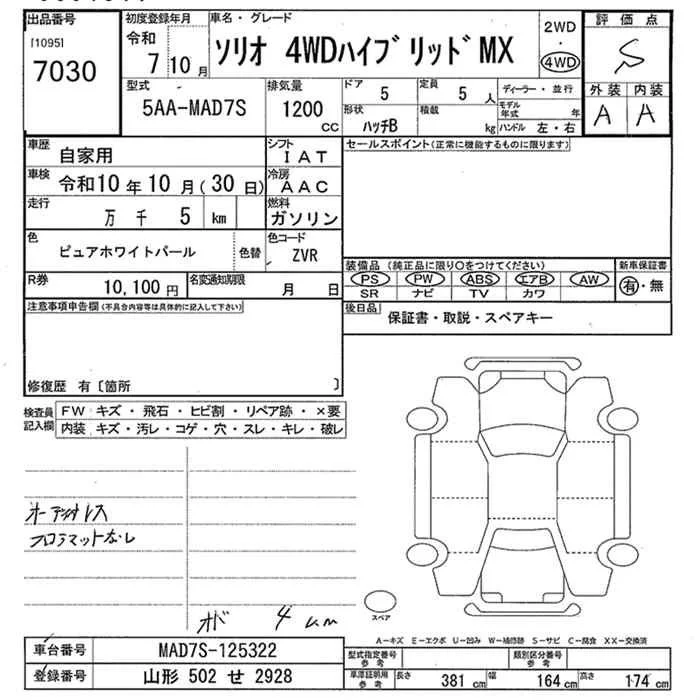 出品番号
[1095]
7030
初度登録年月
令和
7 10 月
車名・グレード
ソリオ 4WDハイブリッドMX
2WD
・
4WD
評価点
S
外装 内装
A A
型式
5AA-MAD7S
排気量
1200 cc
ドア
5
定員
5 人
ディーラー・並行
形状
ハッチB
積載
kg
モデル年式 年
ハンドル 左・右
車歴
自家用
シフト
IAT
車検
令和10年10月(30日)
冷房
AAC
走行
万 千 5 km
燃料
ガソリン
色
ピュアホワイトパール
色替
色コード
ZVR
R券
10,100 円
名変通知期限
月 日
セールスポイント(正常に機能するものに限ります)
装備品(純正品に限り〇をつけてください)
PS PW ABS エアB AW
SR ナビ TV カワ
新車保証書
有・無
後日品
保証書・取説・スペアキー
注意事項申告欄(不具合内容等は具体的に記入して下さい)
修復歴 有〔箇所 〕
検査員記入欄
FW キズ・飛石・ヒビ割・リペア跡・×要
内装 キズ・汚レ・コゲ・穴・スレ・キレ・破レ
オーディオレス
フロアマットなし
オド 4km
スペア
A-キズ E-エクボ U-凹み W-補修跡 S-サビ C-腐食 XX-交換済
車台番号
MAD7S-125322
登録番号
山形 502 せ 2928
型式指定番号
参考
類別区分番号
参考
車庫証明用
参考
長さ 381 cm 幅 164 cm 高さ 174 cm